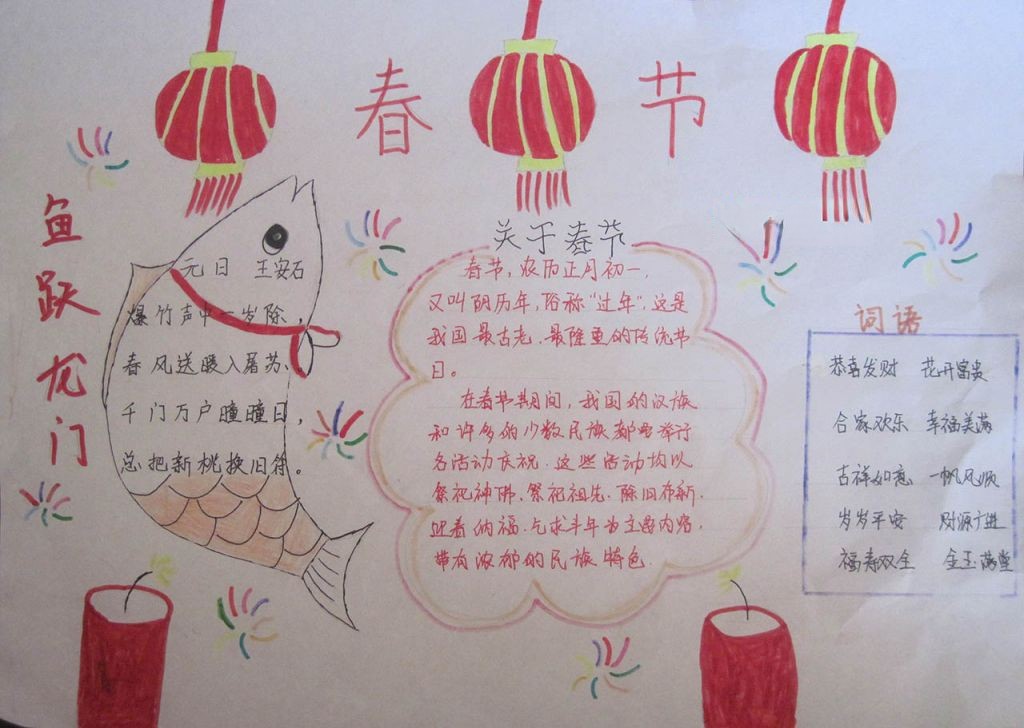 春节
鱼跃龙门
元日 王安石
爆竹声中一岁除，
春风送暖入屠苏。
千门万户曈曈日，
总把新桃换旧符。
关于春节
春节，农历正月初一，
又叫阴历年，俗称“过年”，这是
我国最古老、最隆重的传统节
日。
在春节其期间，我国的汉族
和许多的少数民族都要举行
各活动庆祝。这些活动均以
祭祀神佛、祭祀祖先、除旧布新、
迎春纳福、乞求丰年为主要内容，
带有浓郁的民族特色.
词语
恭喜发财 花开富贵
合家欢乐 幸福美满
吉祥如意 一帆风顺
岁岁平安 财源广进
福寿双全 金玉满堂